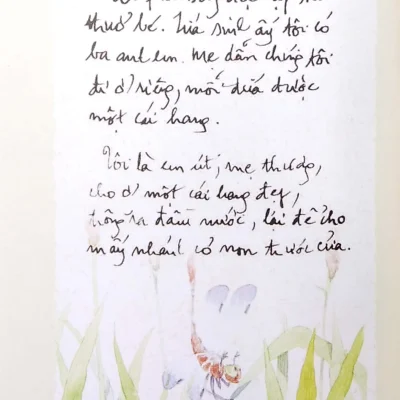 thuở bé. Lứa sinh ấy tôi có
ba anh em. Mẹ dẫn chúng tôi
đi ở riêng, mỗi đứa được
một cái hang.
Tôi là em út, mẹ thương,
cho ở một cái hang đẹp,
trông ra đầm nước, lại để cho
mấy nhánh cỏ non trước cửa.